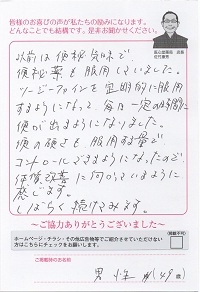 皆様のお喜びの声が私たちの励みになります。
どんなことでも結構です。是非お聞かせください。
以前は便秘気味で、
便秘薬を服用していました。
ソージーファインを定期的に服用
するようになって、毎日一定の時間に
便が出るようになりました。
便の硬さも、服用する量で
コントロールできるようになったので、
便秘改善に向かっているように
感じます。
しばらく続けてみます。
〜ご協力ありがとうございました〜
ホームページ・チラシ・その他広告物等でご紹介させていただけない
方はこちらにチェックをお願いします。
掲載不可
ご掲載時のお名前
男性 (49歳)